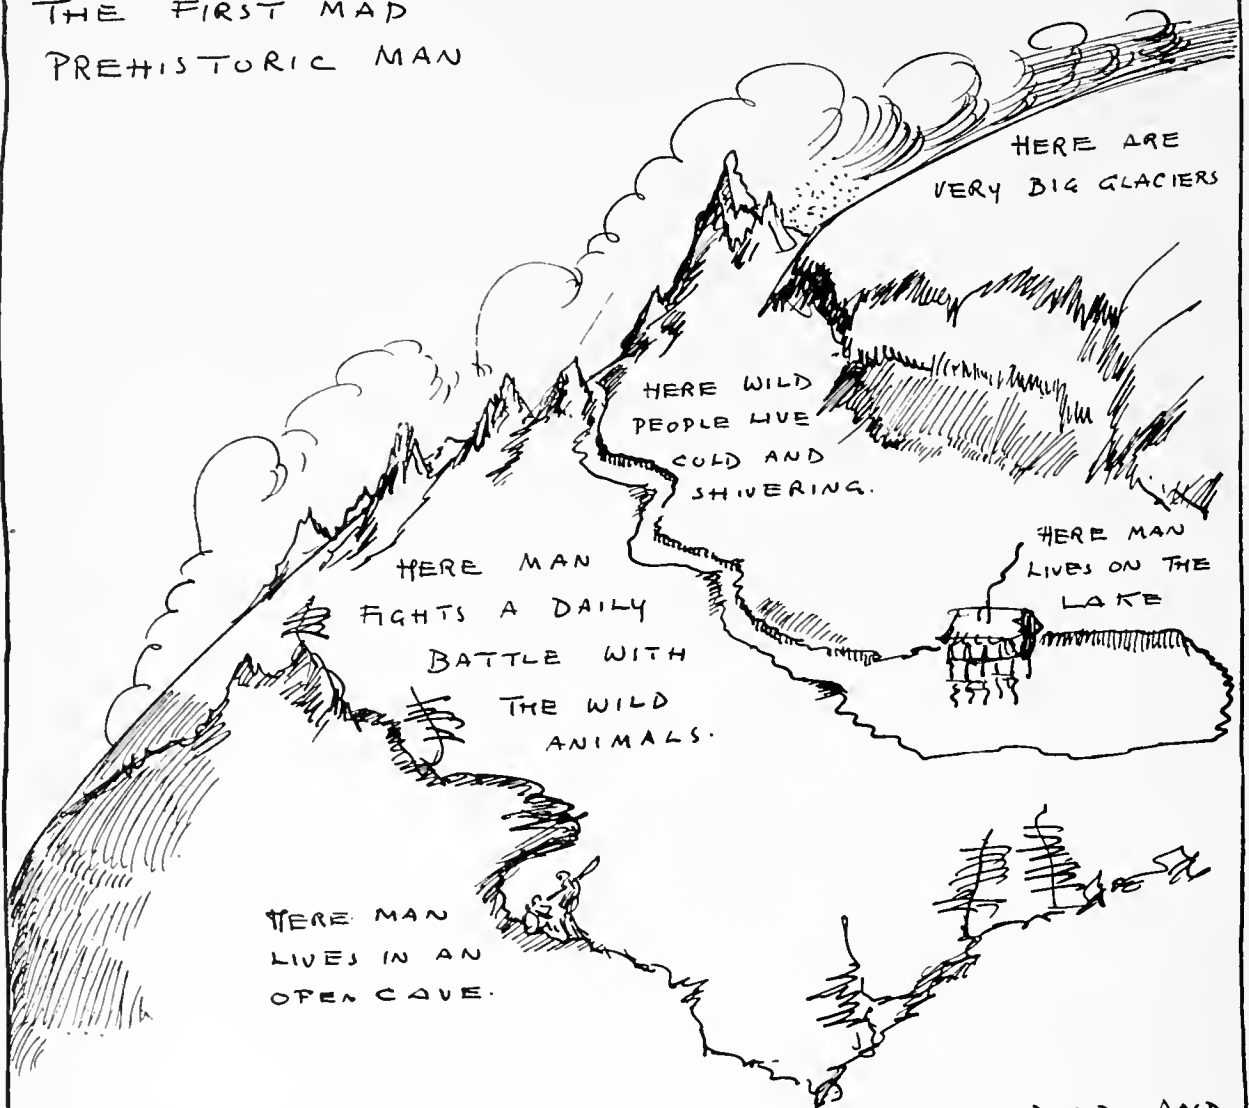 THE FIRST MAD
PREHISTORIC MAN
HERE ARE
VERY BIG GLACIERS
HERE WILD
PEOPLE LIVE
COLD AND
SHIVERING.
HERE MAN
LIVES ON THE
LAKE
HERE MAN
FIGHTS A DAILY
BATTLE WITH
THE WILD
ANIMALS.
HERE MAN
LIVES IN AN
OPEN CAVE.
AND